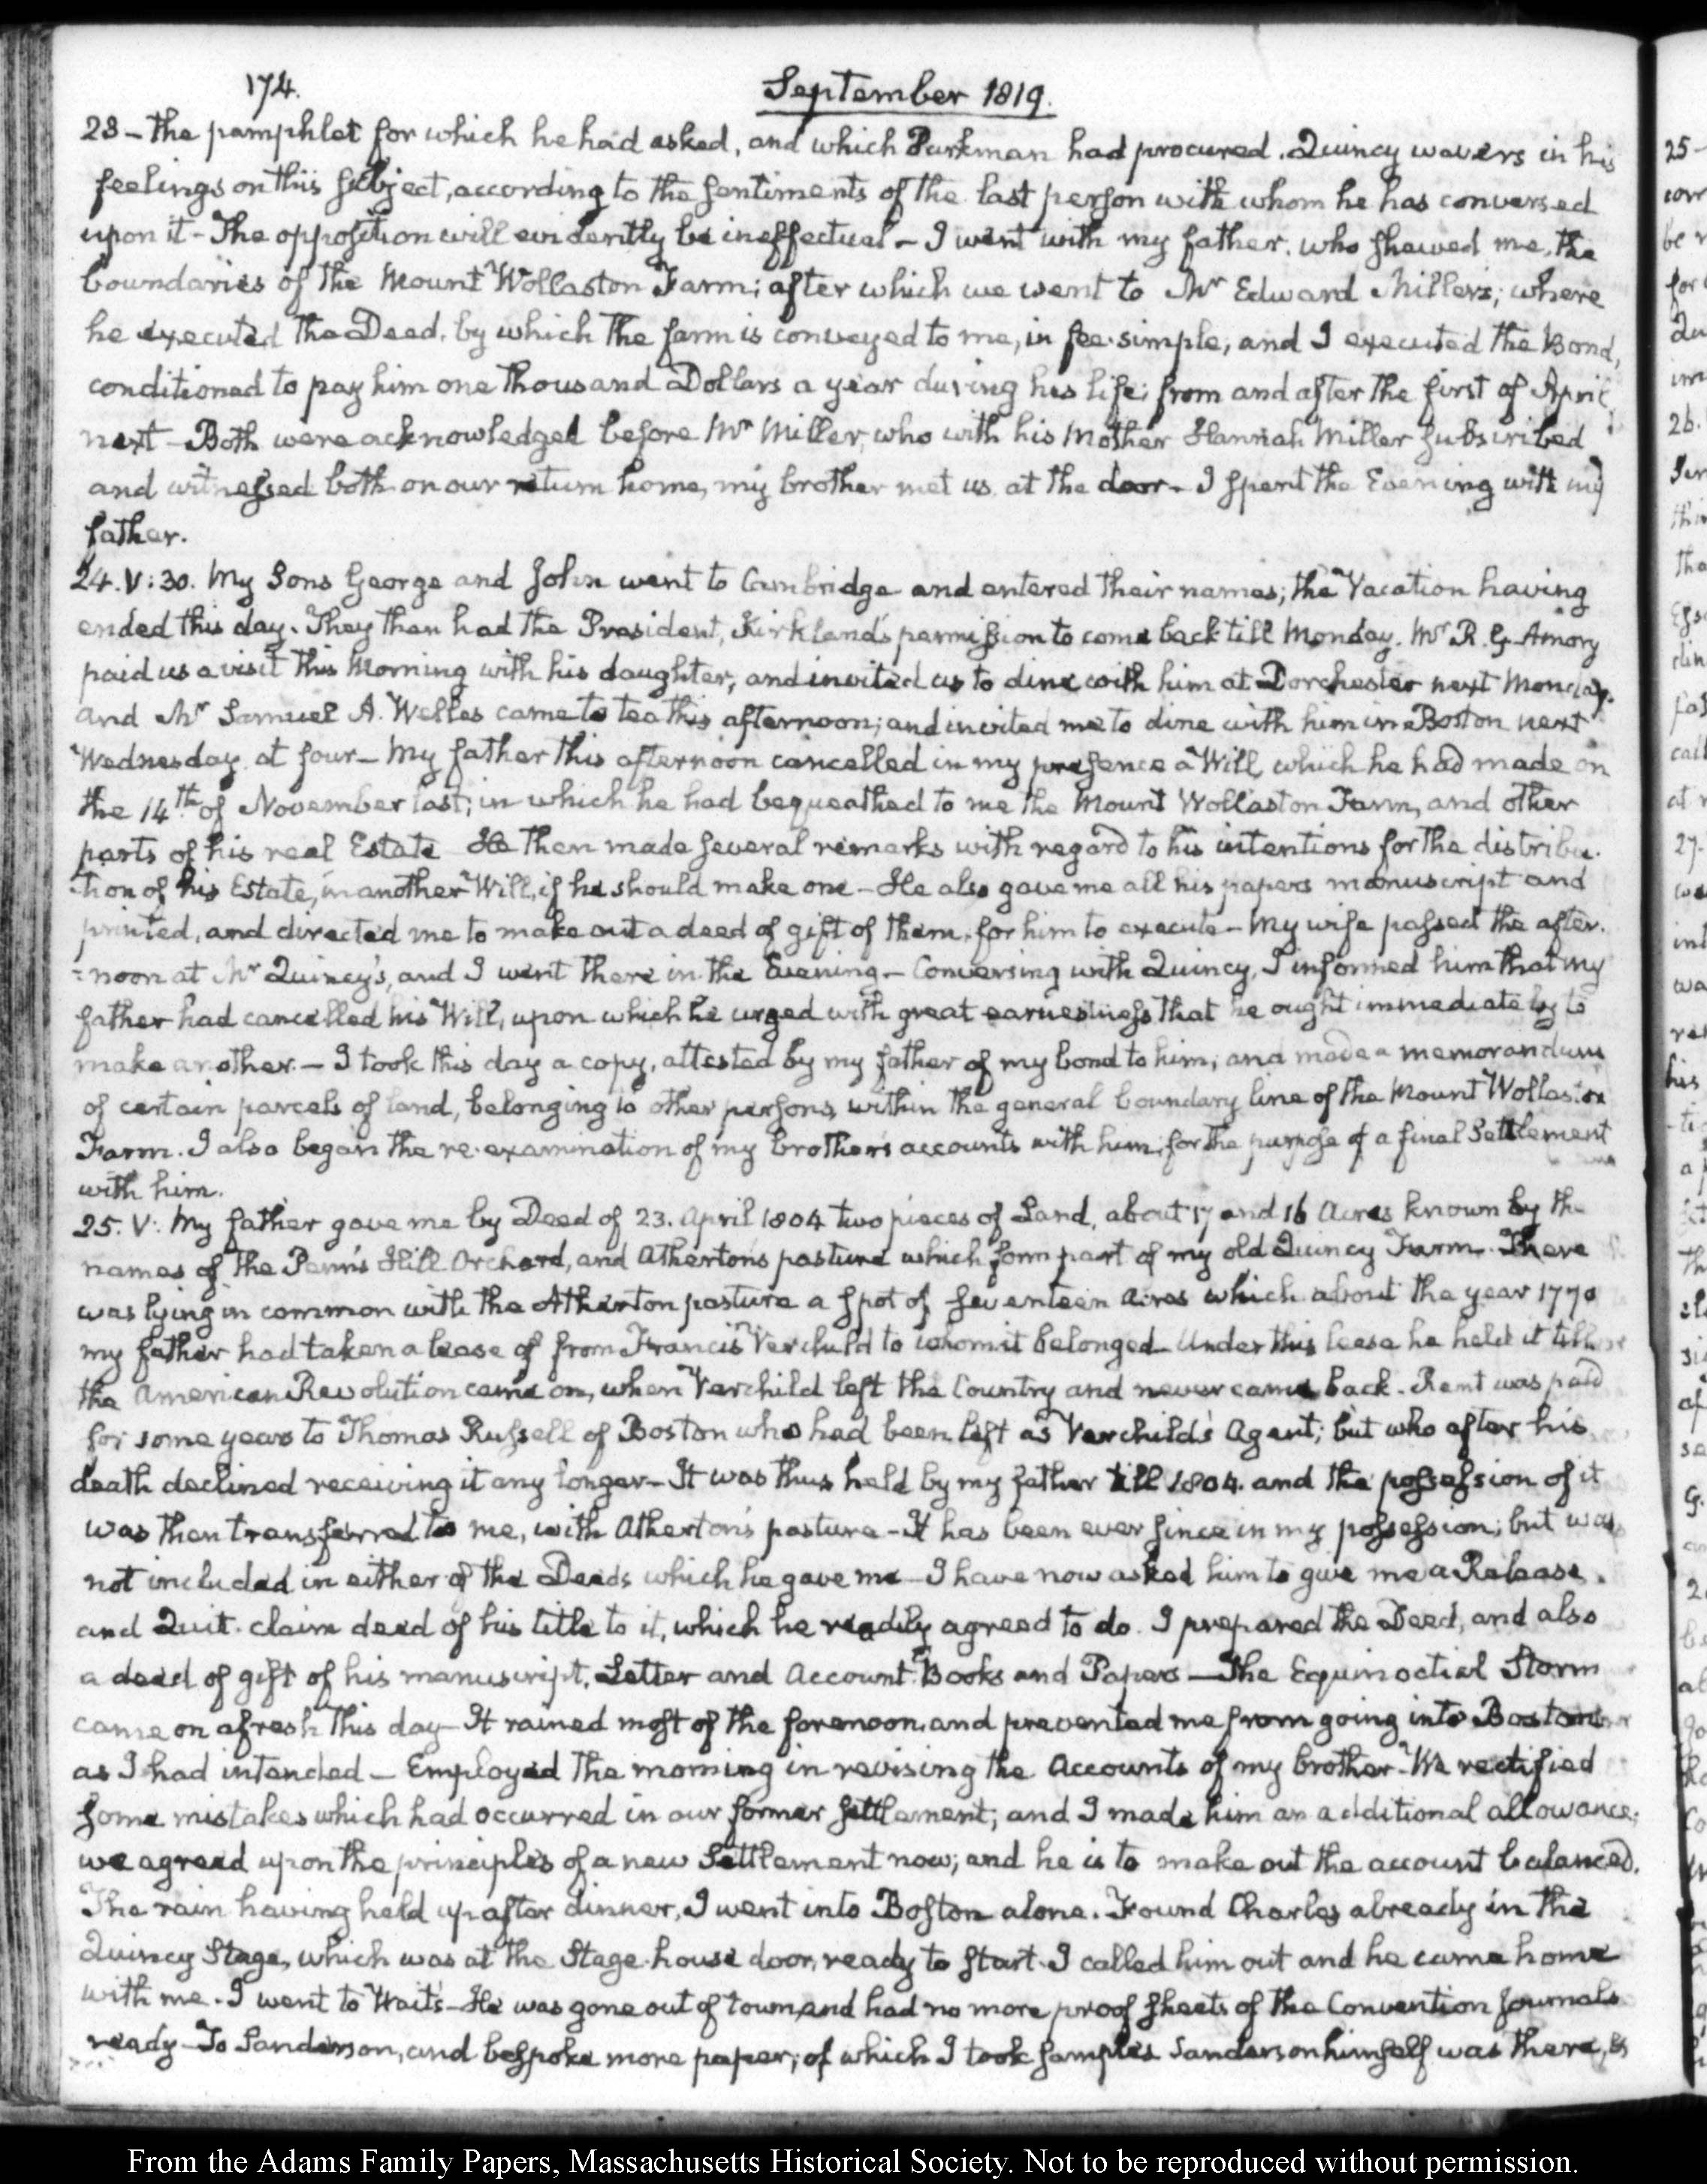 174.
September 1819.
23 - the pamphlet for which he had asked, and which Parkman had procured. Quincy wavers in his
feelings on this subject, according to the sentiments of the last person with whom he has conversed
upon it - The opposition will evidently be ineffectual - I went with my father, who shewed me, the
boundaries of the Mount Wollaston Farm; after which we went to Mr Edward Miller's; where
he executed the Deed, by which the farm is conveyed to me, in fee-simple, and I executed the Bond,
conditioned to pay him one thousand Dollars a year during his life; from and after the first of April
next - Both were acknowledged before Mr Miller, who with his Mother Hannah Miller subscribed
and witnessed both - on our return home, my brother met us at the door - I spent the Evening with my
father.
24. V:30. My Sons George and John went to Cambridge and entered their names; the Vacation having
ended this day. They then had the President, Kirkland's permission to come back till Monday. Mr R. G. Amory
paid us a visit this Morning with his daughter, and invited us to dine with him at Dorchester next Monday.
and Mr Samuel A. Welles came to tea this afternoon; and invited me to dine with him in Boston next
Wednesday at four - My father this afternoon cancelled in my presence a Will, which he had made on
the 14th of November last; in which he had bequeathed to me the Mount Wollaston Farm, and other
parts of his real Estate He then made several remarks with regard to his intentions for the distribu-
-tion of his Estate, in another Will, if he should make one - He also gave me all his papers manuscript and
printed, and directed me to make out a deed of gift of them, for him to execute - My wife passed the after-
-noon at Mr Quincy's, and I went there in the Evening - Conversing with Quincy, I informed him that my
father had cancelled his Will, upon which he urged with great earnestness that he ought immediately to
make another. - I took this day a copy, attested by my father of my bond to him; and made a memorandum
of certain parcels of land, belonging to other persons, within the general boundary line of the Mount Wollaston
Farm. I also began the re-examination of my brother's accounts with him; for the purpose of a final Settlement
with him.
25. V: My father gave me by Deed of 23. April 1804 two pieces of Land, about 17 and 16 Acres known by the
names of the Penn's Hill Orchard, and Atherton's pasture which form part of my old Quincy Farm. There
was lying in common with the Atherton pasture a spot of seventeen Acres which about the year 1770
my father had taken a lease of from Francis Verchild to whom it belonged - Under this lease he held it till
the American Revolution came on, when Verchild left the Country and never came back. Rent was paid
for some years to Thomas Russell of Boston who had been left as Verchild's Agent; but who after his
death declined receiving it any longer - It was thus held by my father till 1804. and the possession of it
was then transferred to me, with Atherton's pasture - It has been ever since in my possession; but was
not included in either of the Deeds which he gave me - I have now asked him to give me a Release
and Quit-claim deed of his title to it, which he readily agreed to do. I prepared the Deed, and also
a deed of gift of his manuscript, Letter and Account Books and Papers - The Equinoctial Storm
came on afresh this day - It rained most of the forenoon, and prevented me from going into Boston
as I had intended - Employed the morning in revising the Accounts of my brother - We rectified
some mistakes which had occurred in our former settlement; and I made him an additional allowance;
we agreed upon the principles of a new Settlement now; and he is to make out the account balanced.
The rain having held up after dinner, I went into Boston alone. Found Charles already in the
Quincy Stage, which was at the Stage-house door, ready to start. I called him out and he came home
with me. I went to Wait's - He was gone out of town, and had no more proof sheets of the Convention Journals
ready - To Sanderson, and bespoke more paper; of which I took samples Sanderson himself was there, &
From the Adams Family Papers, Massachusetts Historical Society. Not to be reproduced without permission.